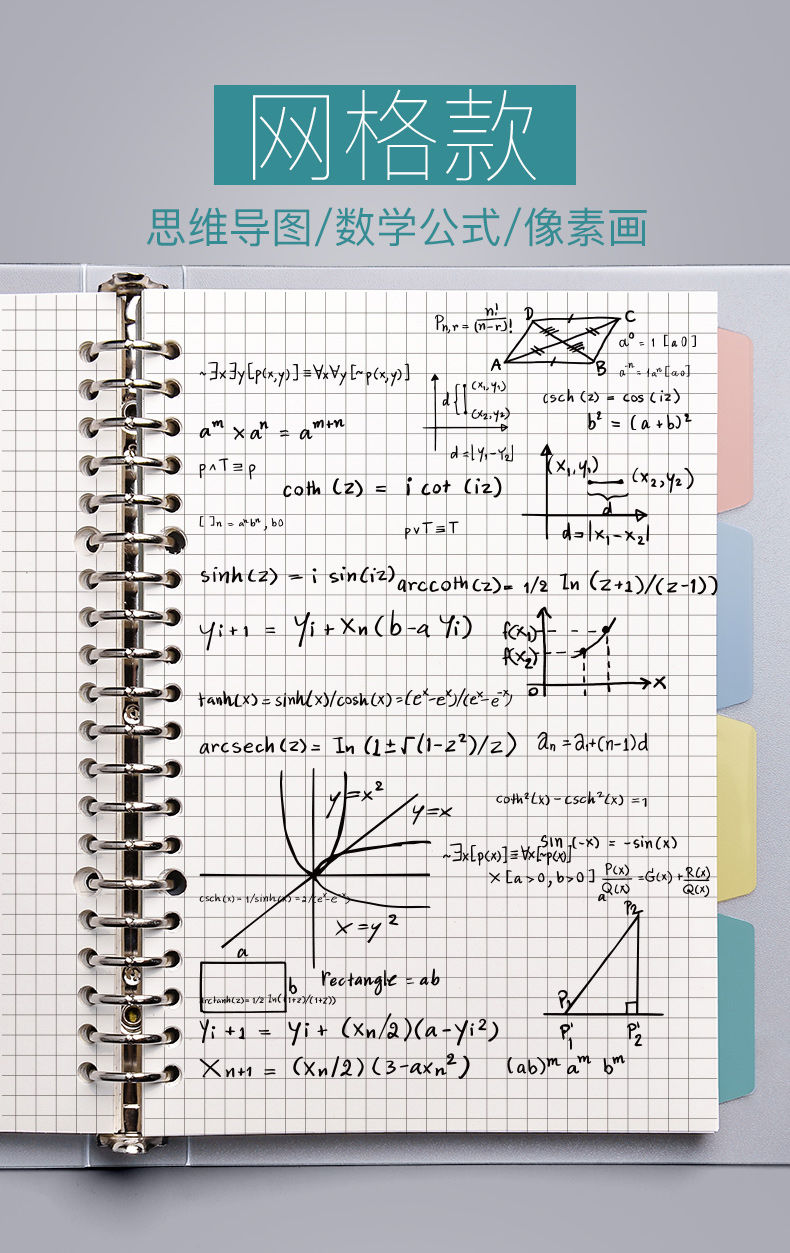 网格款
思维导图/数学公式/像素画
Pn,r = n!/(n-r)!
D C
A B
a⁰ = 1 [a0]
a⁻ⁿ = 1aⁿ [a0]
~∃x∃y[p(x,y)]≡∀x∀y[~p(x,y)]
d { (x₁,y₁)
(x₂,y₂)
csch (z) = cos (iz)
b² = (a+b)²
aᵐ × aⁿ = aᵐ⁺ⁿ
d=|Y₁-Y₂|
p∧T≡p
(x₁,y₁) (x₂,y₂)
coth (z) = i cot (iz)
d
[ ]n = aⁿbⁿ, b0
p∨T≡T
d=|x₁-x₂|
sinh(z) = i sin(iz)
arccoth(z)= 1/2 In (z+1)/(z-1))
yi+1 = yi+Xn(b-a yi)
f(x₁)
f(x₂)
0 X
tanh(x)=sinh(x)/cosh(x)=(eˣ-eˣ)/(eˣ-e⁻ˣ)
arcsech(z)= In (1±√(1-z²)/z)
an=a₁+(n-1)d
y=x²
y=x
coth²(x)-csch²(x) =1
sin (-x) = -sin(x)
~∃x[p(x)]≡∀x[~p(x)]
x [a>0, b>0] P(x)/Q(x) =G(x)+R(x)/Q(x)
a
csch(x)=1/sinh(x)=2/(eˣ-e⁻ˣ)
x=y²
P₂
a
b
rectangle = ab
arctanh(z)= 1/2 In((1+z)/(1+z))
P₁
P'₁ P'₂
yi+1 = yi+ (xn/2)(a-yi²)
Xn+1 = (xn/2)(3-axn²)
(ab)ᵐ aᵐ bᵐ